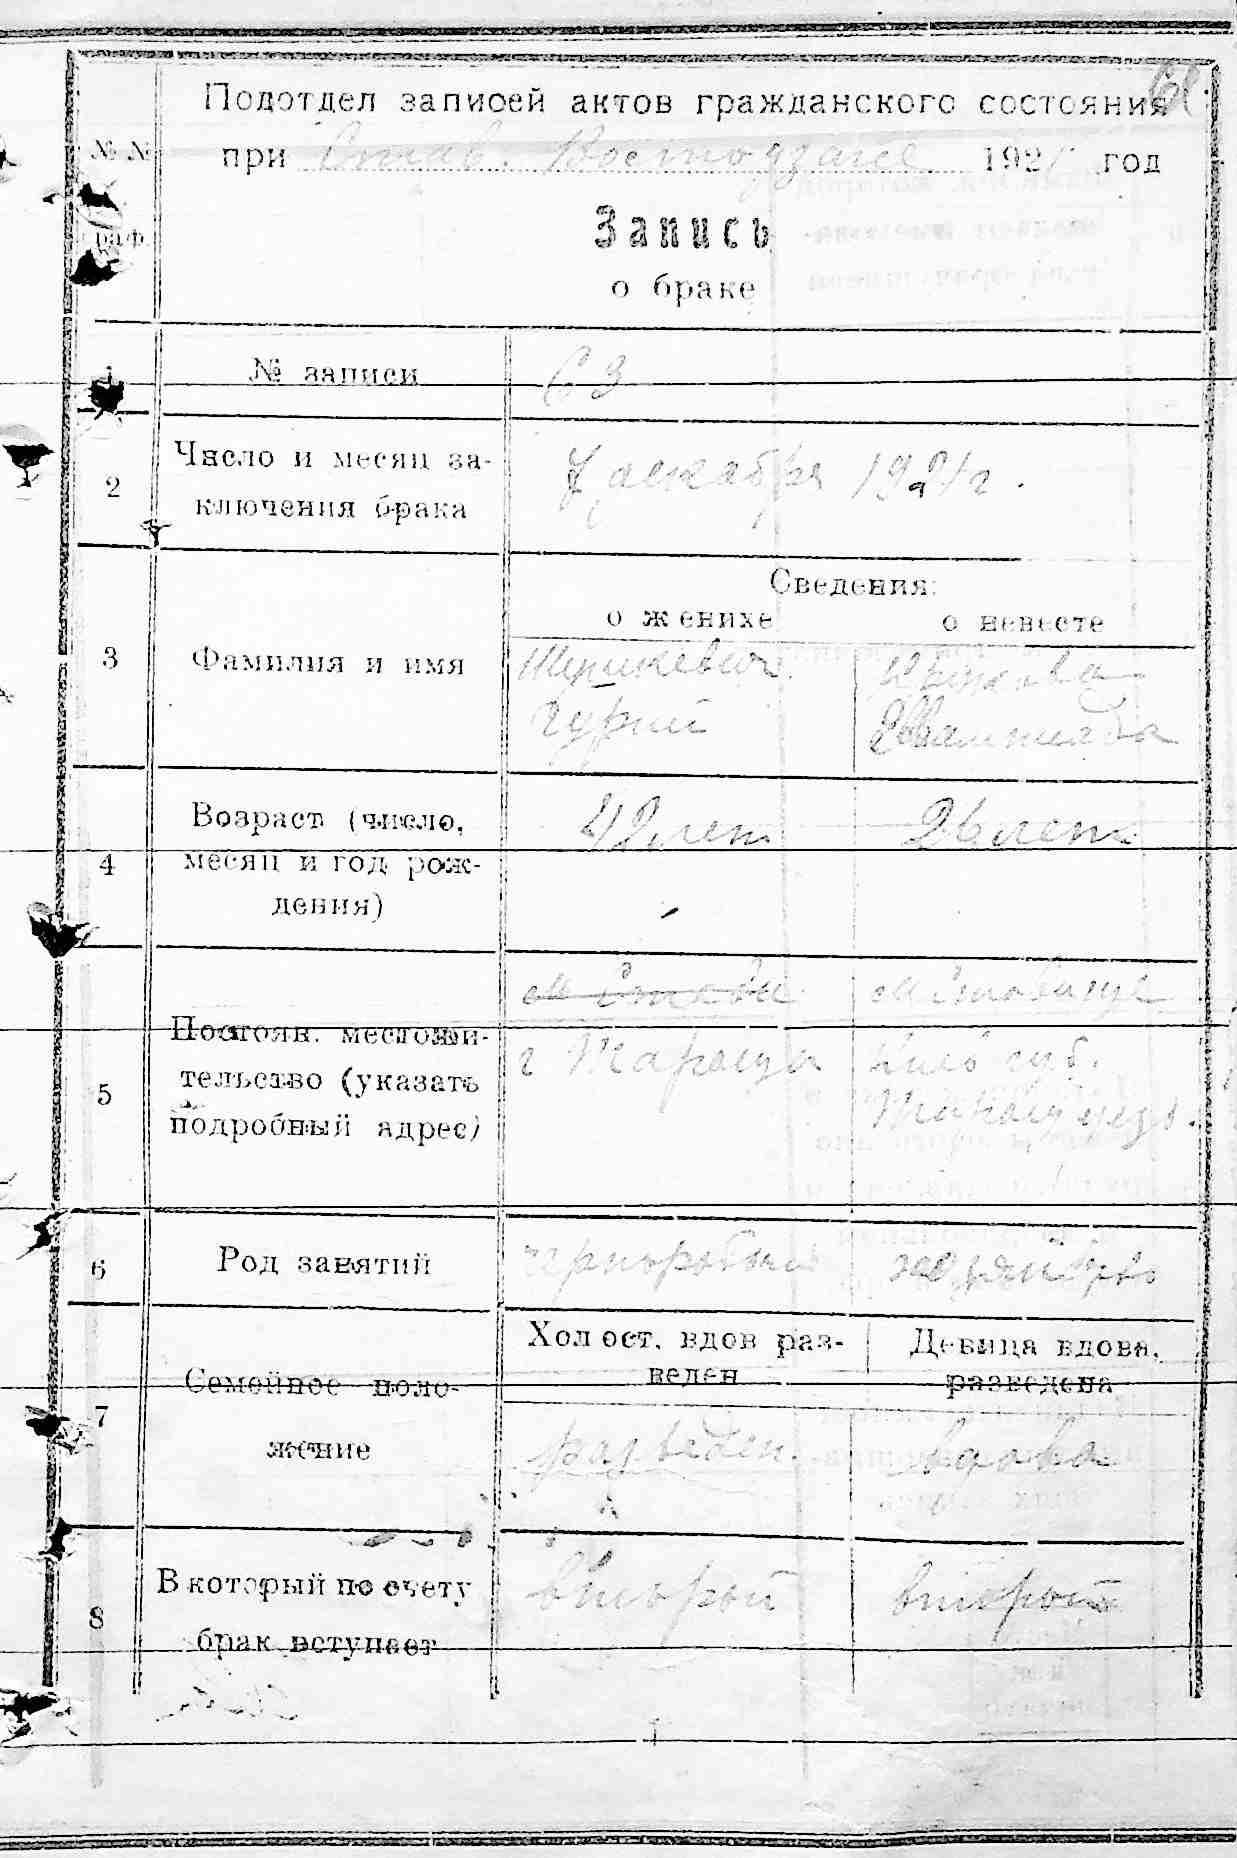 61
Подотдел записей актов гражданского состояния
№ №
при Став. 1921 год
граф.
Запись
о браке
1
№ записи
63
2
Число и месяц за-
ключения брака
7 декабря 1921 г.
Сведения:
о женихе
о невесте
3
Фамилия и имя
Гурий
4
Возраст (число,
месяц и год рож-
дения)
42 лет
26 лет
5
Постоян. местожи-
тельство (указать
подробный адрес)
г Тараща
м Ставище
Киев губ.
6
Род занятий
чернорабоч
7
Семейное поло-
жение
Холост, вдов раз-
веден
Девица вдова,
разведена
разведен.
вдова
8
В который по счету
брак вступает
второй
второй